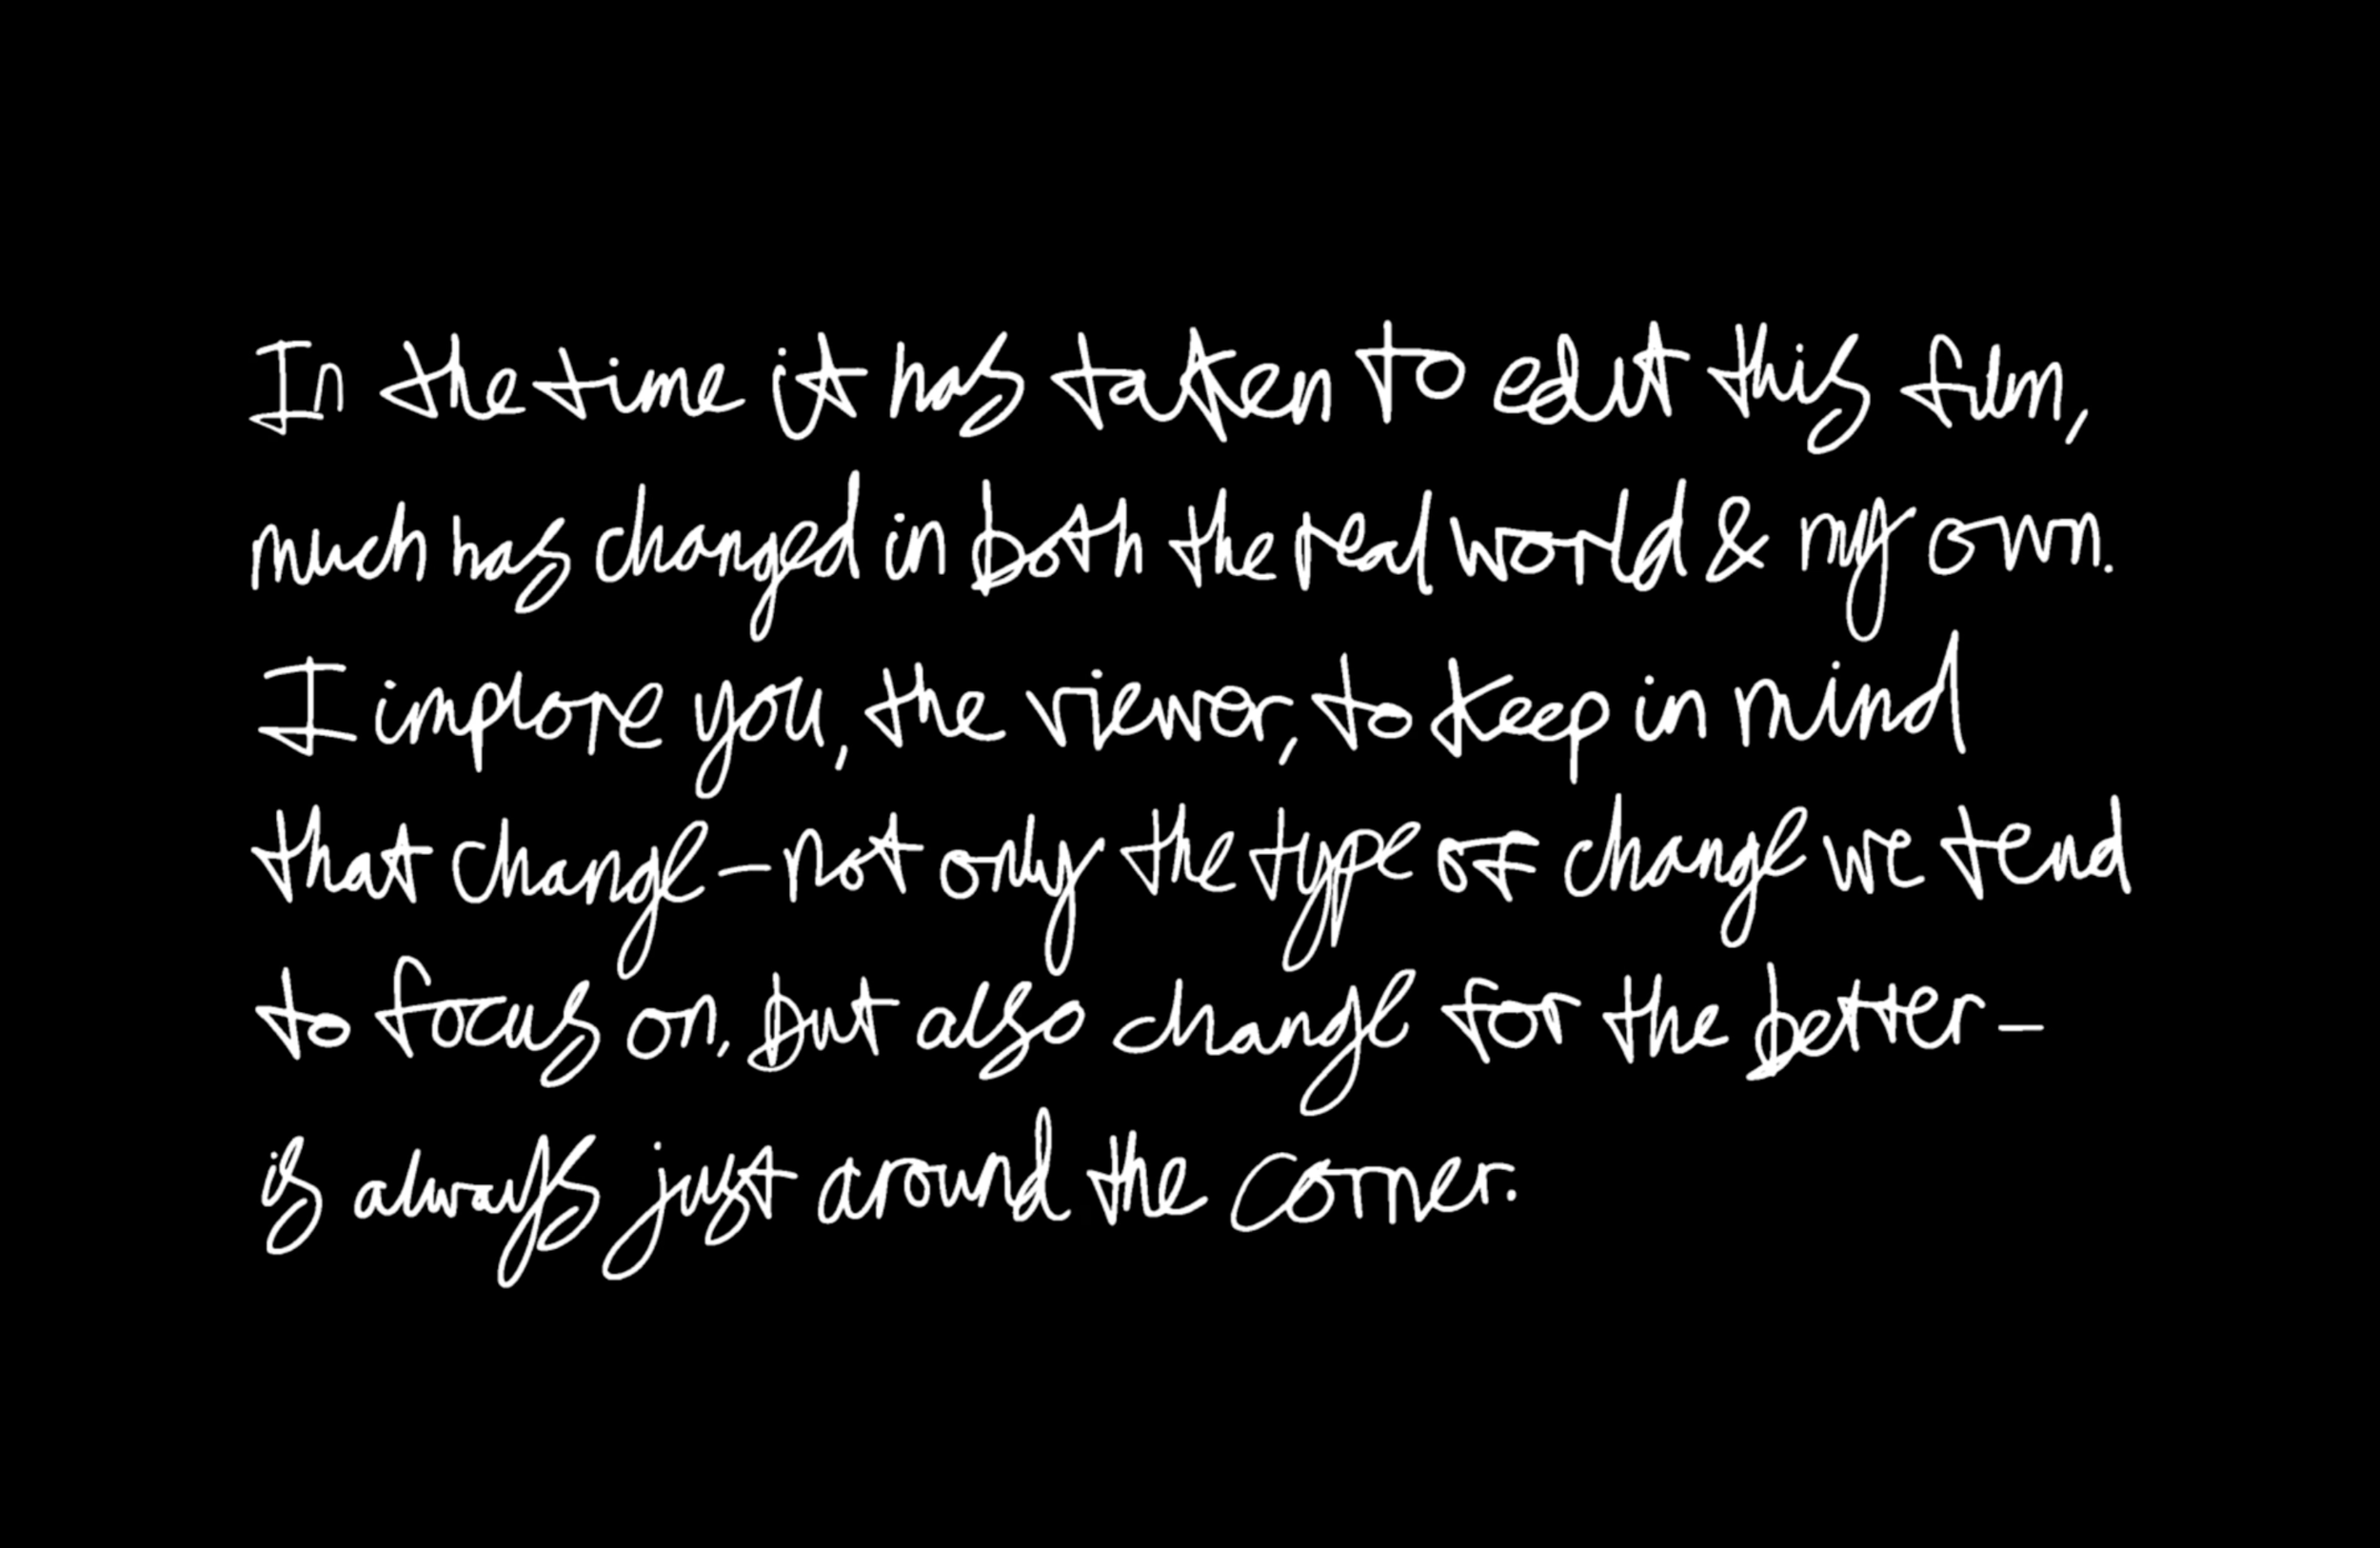 In the time it has taken to edit this film,
much has changed in both the real world & my own.
I implore you, the viewer, to keep in mind
that change – not only the type of change we tend
to focus on, but also change for the better –
is always just around the corner.